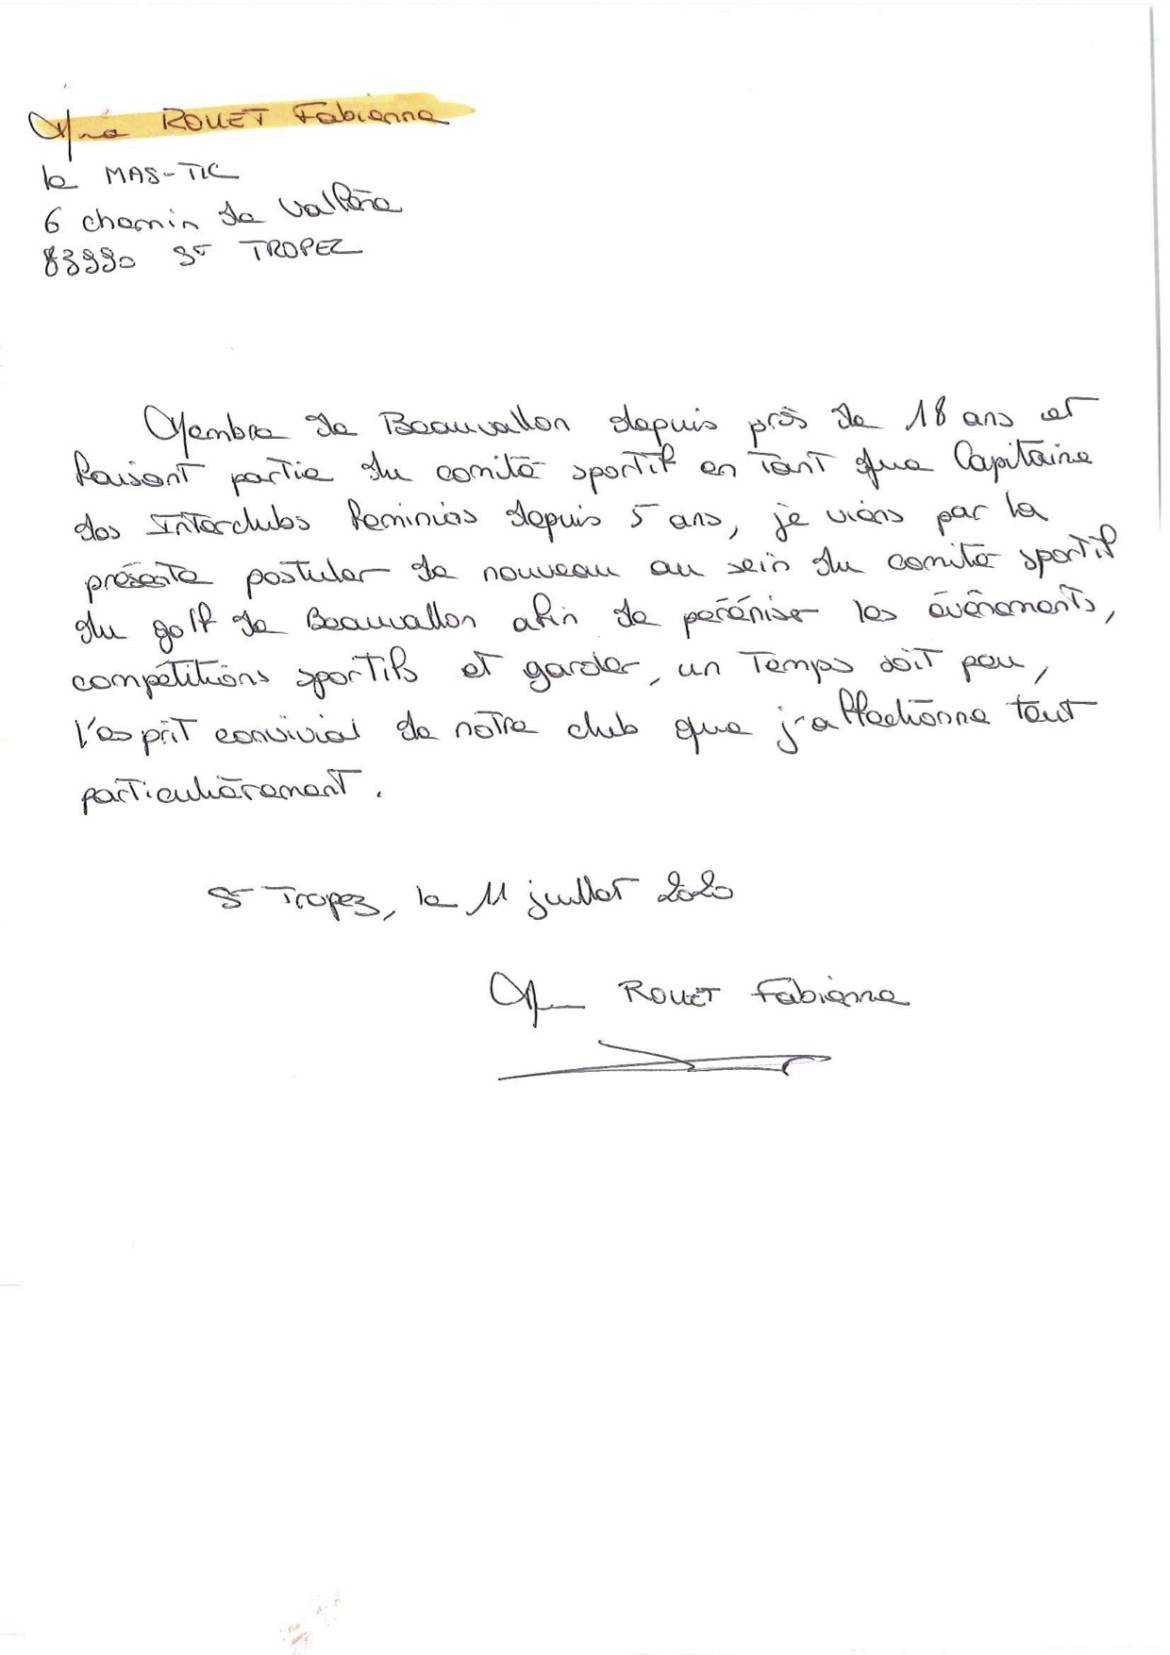 Mme ROUET Fabienne
le MAS-TIC
6 chemin de Valfère
83990 St TROPEZ
Membre de Beauvallon depuis près de 18 ans et
faisant partie du comité sportif en tant que Capitaine
des Interclubs feminies depuis 5 ans, je viens par la
présente postuler de nouveau au sein du comité sportif
du golf de Beauvallon afin de peréniser les évènements,
compétitions sportifs et garder, un temps soit peu,
l'esprit convivial de notre club que j'affectionne tout
particulièrement.
St Tropez, le 11 juillet 2020
Mme ROUET Fabienne